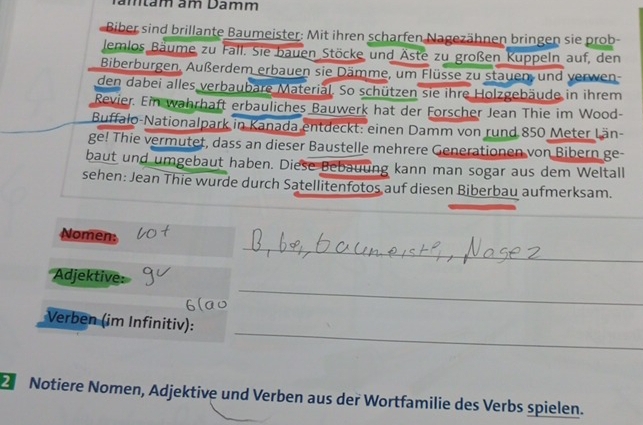 am Damm
Biber sind brillante Baumeister: Mit ihren scharfen Nagezähnen bringen sie prob-
lemlos Bäume zu Fall. Sie bauen Stöcke und Äste zu großen Kuppeln auf, den
Biberburgen. Außerdem erbauen sie Dämme, um Flüsse zu stauen, und verwen-
den dabei alles verbaubare Material. So schützen sie ihre Holzgebäude in ihrem
Revier. Ein wahrhaft erbauliches Bauwerk hat der Forscher Jean Thie im Wood-
Buffalo-Nationalpark in Kanada entdeckt: einen Damm von rund 850 Meter Län-
ge! Thie vermutet, dass an dieser Baustelle mehrere Generationen von Bibern ge-
baut und umgebaut haben. Diese Bebauung kann man sogar aus dem Weltall
sehen: Jean Thie wurde durch Satellitenfotos auf diesen Biberbau aufmerksam.
Nomen: rot
Adjektive: gü
blao
Verben (im Infinitiv):
2 Notiere Nomen, Adjektive und Verben aus der Wortfamilie des Verbs spielen.